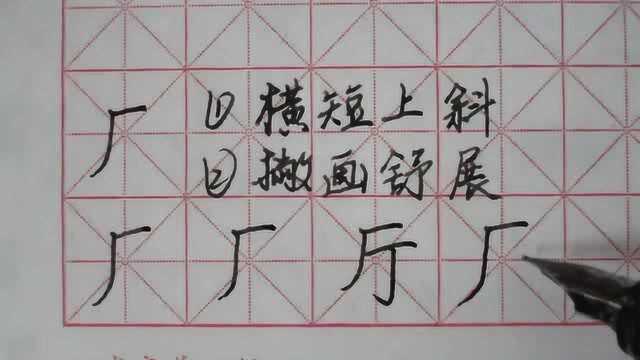 厂 ①横短上斜
②撇画舒展
厂 厂 厅 厂